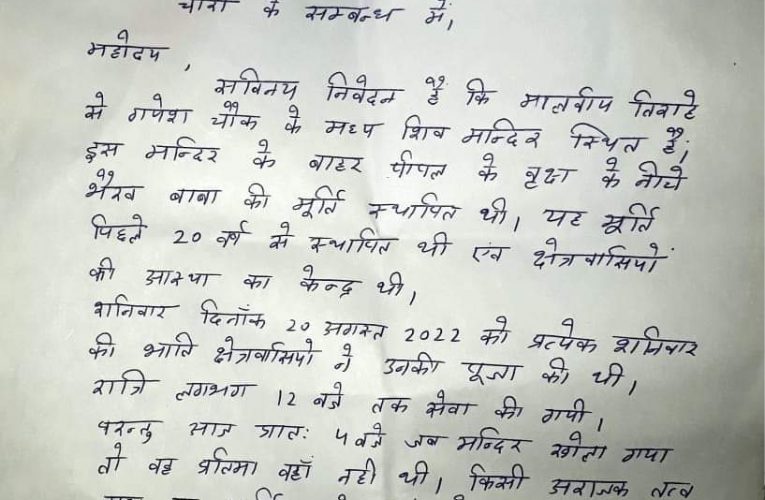 चोरी के सम्बन्ध में,
महोदय,
सविनय निवेदन है कि मालवीय तिराहे
से गणेश चौक के मध्य शिव मन्दिर स्थित है,
इस मन्दिर के बाहर पीपल के वृक्ष के नीचे
भैरव बाबा की मूर्ति स्थापित थी, यह मूर्ति
पिछले 20 वर्ष से स्थापित थी एंव क्षेत्रवासियों
की आस्था का केन्द्र थी,
शनिवार दिनाँक 20 अगस्त 2022 को प्रत्येक शनिवार
की भांति क्षेत्रवासियो ने उनकी पूजा की थी,
रात्रि लगभग 12 बजे तक सेवा की गयी,
परन्तु आज प्रात: 4 बजे जब मन्दिर खोला गया
तो वह प्रतिमा वहाँ नही थी, किसी अराजक तत्व